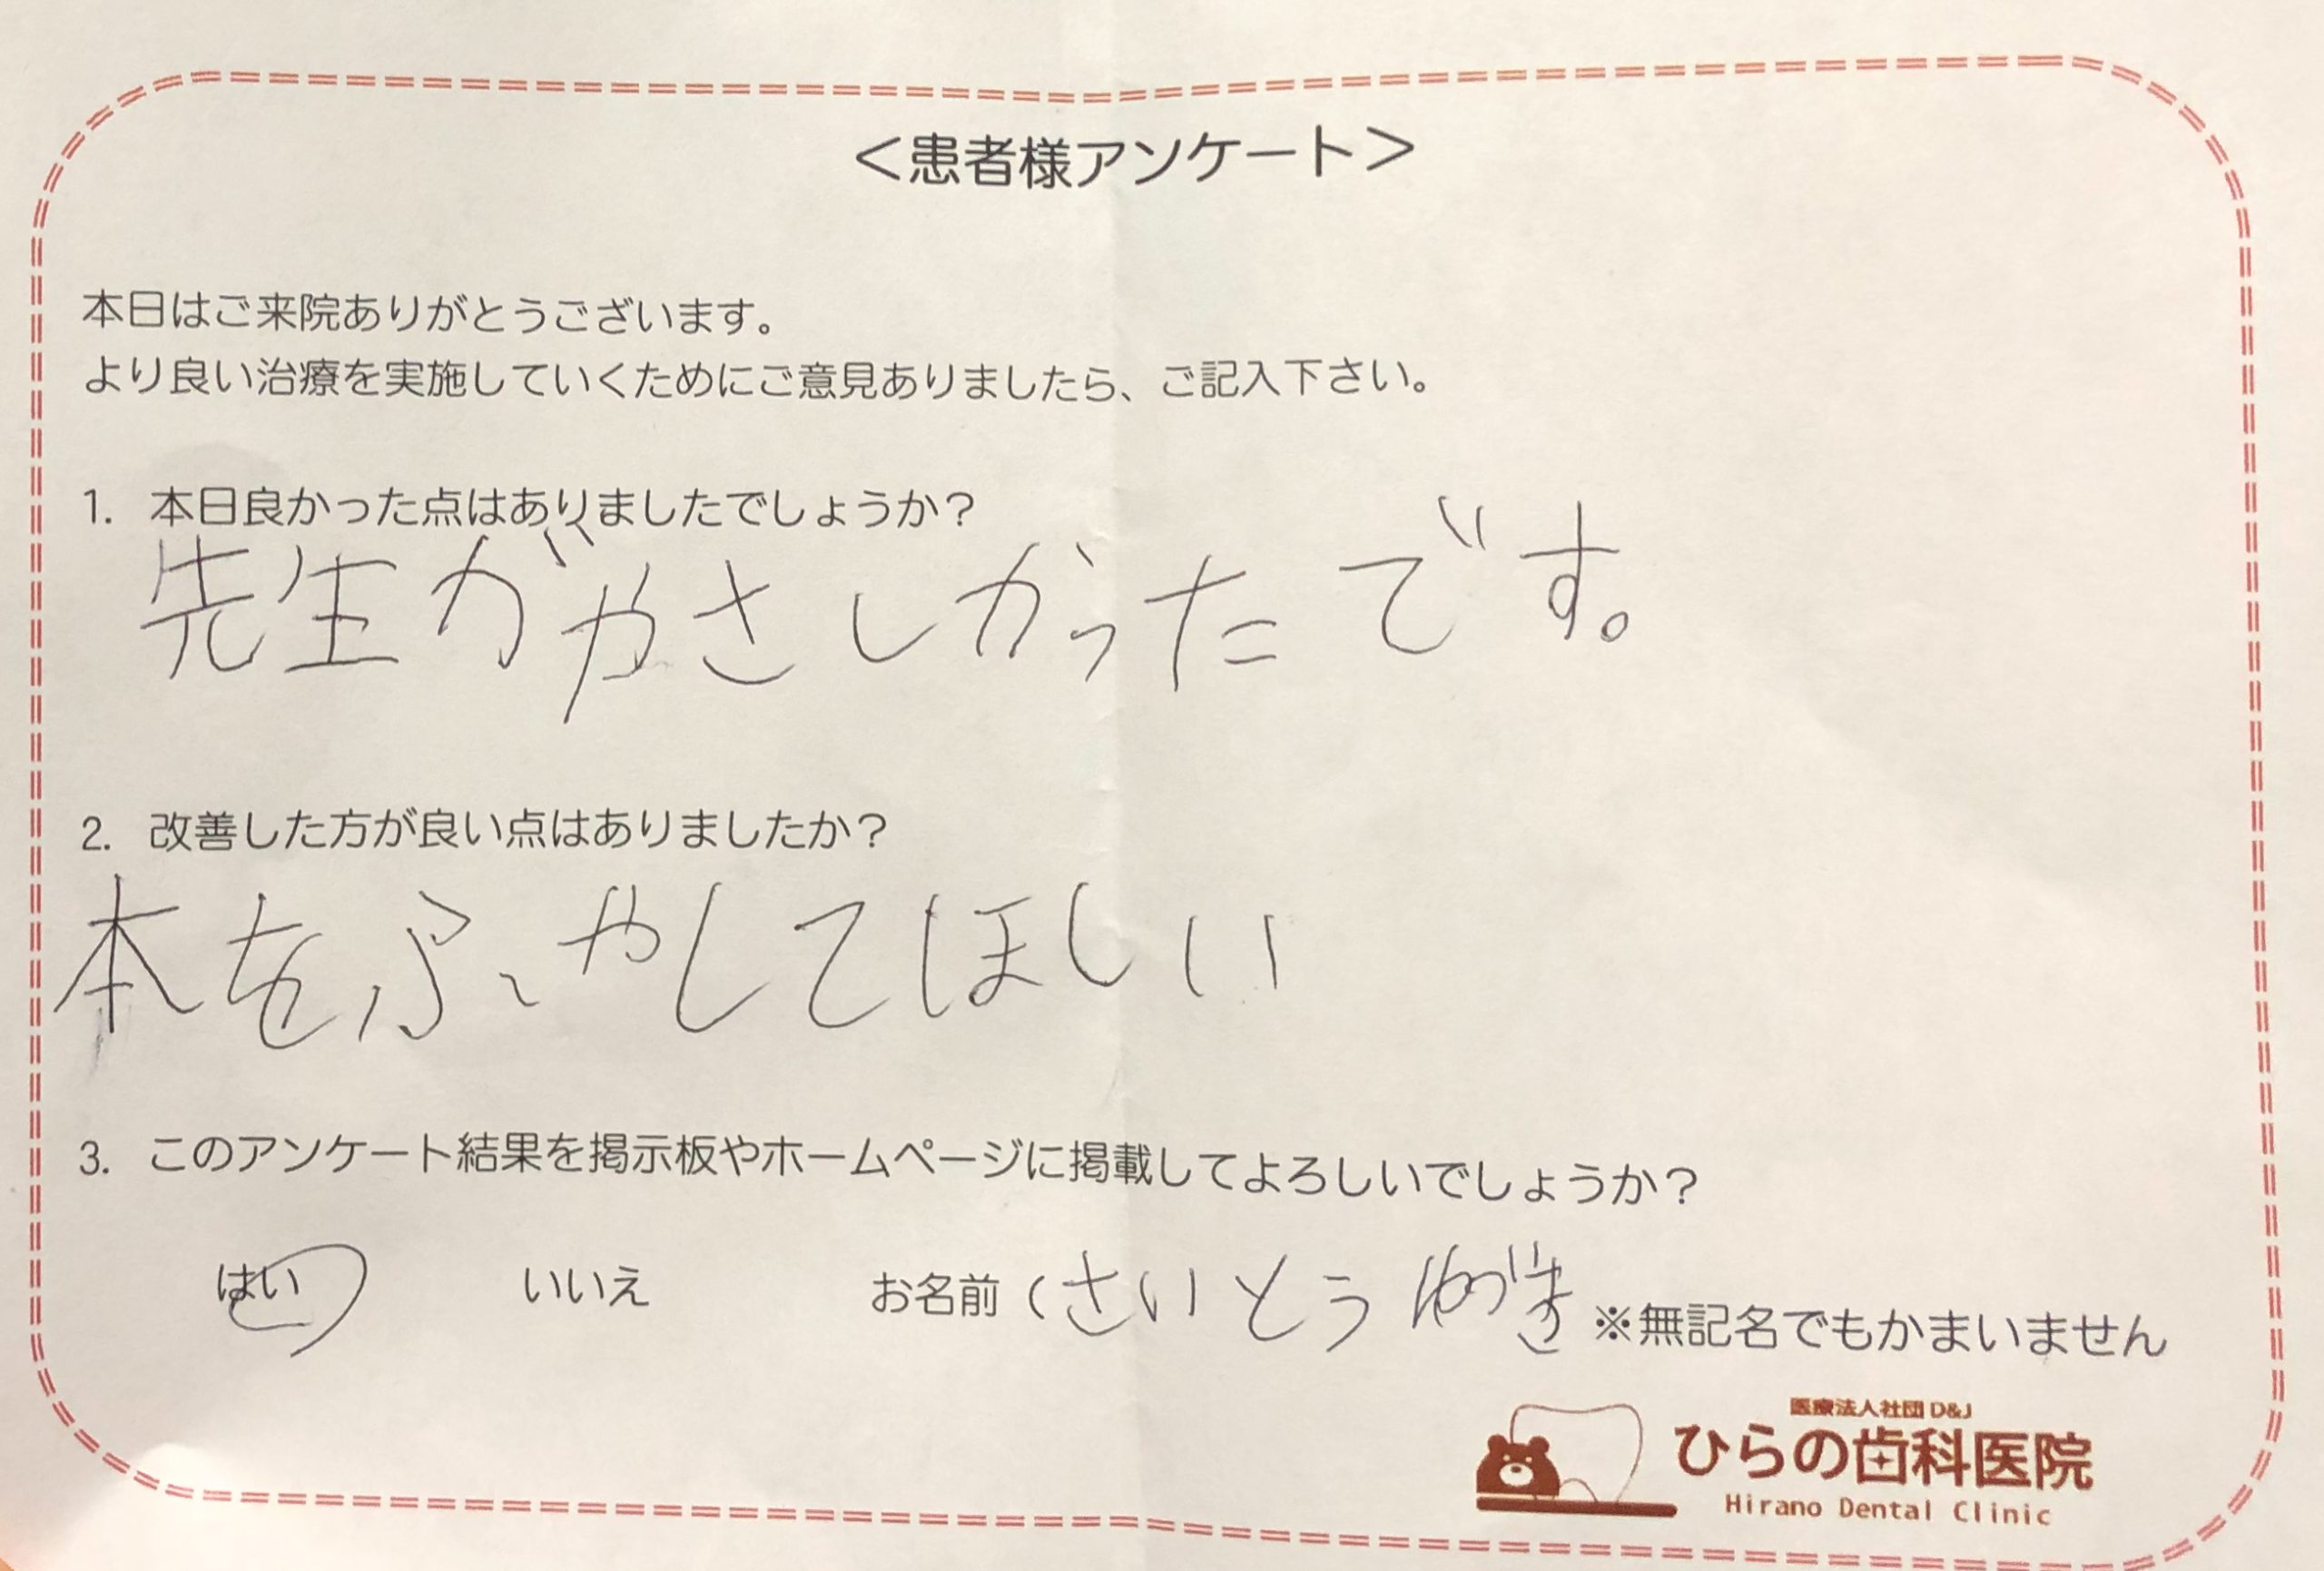 ＜患者様アンケート＞
本日はご来院ありがとうございます。
より良い治療を実施していくためにご意見ありましたら、ご記入下さい。
1. 本日良かった点はありましたでしょうか？
先生がやさしかったです。
2. 改善した方が良い点はありましたか？
本をふやしてほしい
3. このアンケート結果を掲示板やホームページに掲載してよろしいでしょうか？
はい いいえ お名前（さいとう ※無記名でもかまいません
医療法人社団 D&J
ひらの歯科医院
Hirano Dental Clinic